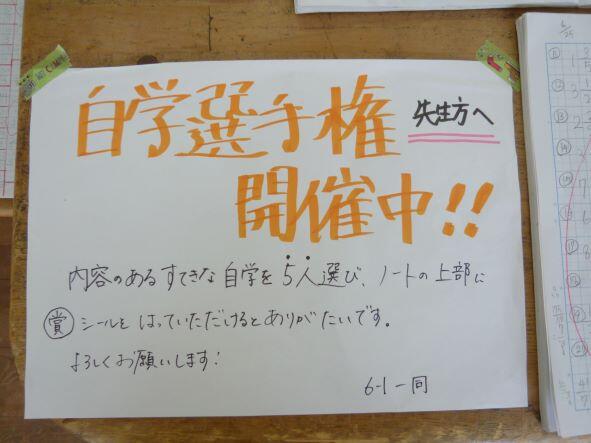 自学選手権
先生方へ
開催中!!
内容のあるすてきな自学を5人選び、ノートの上部に
賞シールをはっていただけるとありがたいです。
よろしくお願いします!
6-1 一同
6/25